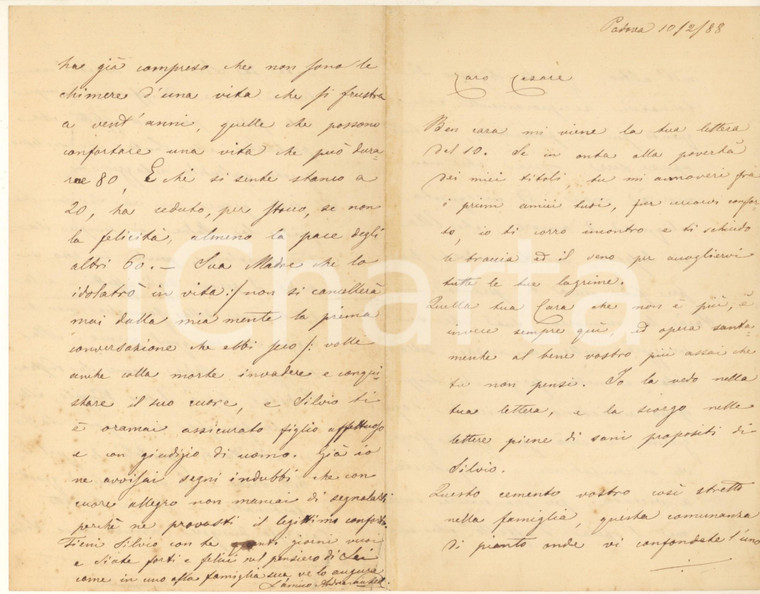 Padova 10/2/88
Caro Cesare
Ben cara mi viene la tua lettera
del 10. Se in onta alla povertà
dei miei titoli, tu mi annoveri fra
i primi amici tuoi, per cercarvi confor-
to, io ti corro incontro e ti schiudo
le braccia ed il seno per accogliervi
tutte le tue lagrime.
Quella tua Cara che non è più, è
invece sempre quì, ed opera santa-
mente al bene vostro più assai che
tu non pensi. Io la vedo nella
tua lettera, e la scorgo nelle
lettere piene di sani propositi di
Silvio.
Questo cemento vostro così stretto
nella famiglia, questa comunanza
di pianto onde vi confondete l'uno
ha già compreso che non sono le
chimere d'una vita che si frustra
a vent'anni, quelle che possono
confortare una vita che può dura-
re 80, E chi si sente stanco a
20, ha ceduto, per stucco, se non
la felicità, almeno la pace degli
altri 60. — Sua Madre che lo
idolatrò in vita :/ non si cancellerà
mai dalla mia mente la prima
conversazione che ebbi seco /: volle
anche colla morte invadere e conqui-
stare il suo cuore, e Silvio ti
è oramai assicurato figlio affettuoso
e con giudizio di uomo. Già io
ne avvisai segni indubbi che con
cuore allegro non mancai di segnalarti
perchè ne provasti il legittimo conforto
Tieni Silvio con te quanti giorni vuoi
e siate forti e felici nel pensiero di Lei
come in uno alla famiglia sua ve lo augura
L'amico
Charta